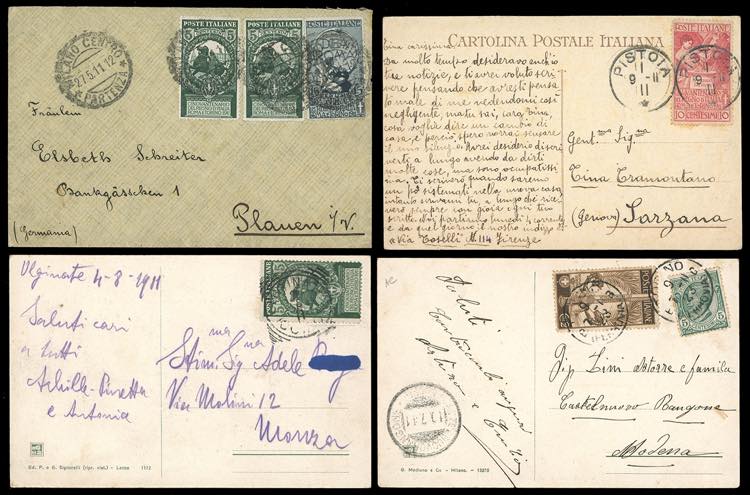 MILANO CENTRO
27.5.11.12
PARTENZA
POSTE ITALIANE
5
5
POSTE ITALIANE
5
5
POSTE ITALIANE
15
Fräulein
Elsbeth Schreiter
Bankgässchen 1
Plauen i/V.
(Germania)
CARTOLINA POSTALE ITALIANA
POSTE ITALIANE
10 CENTESIMI 10
PISTOIA
9-11
11
PISTOIA
9-11
11
Cina carissima
Da molto tempo desideravo anch'io
tue notizie, e ti avrei voluto scri
vere pensando che avresti pensa
to male di me vedendomi così
negligente, ma tu sai, cara Cina,
cosa voglia dire un cambio di
casa, e perciò spero vorrai scusare
il mio silenzio. Avrei desiderio di scri
verti a lungo avendo da dirti
molte cose, ma sono occupatissi
ma. Ti scriverò quando saremo
un pò sistemati nella nuova casa
intanto scrivimi tu, a lungo che rice
verò sempre con gioia ogni tuo
scritto. Noi partiremo lunedì 4 corrente
e da quel giorno il nostro indirizzo
è via Toselli N. 114 Firenze
Gent.ma Sig.na
Cina Tramontano
(Genova) Sarzana
Olginate 4-8-1911
Saluti cari
a tutti
Achille
e Antonia
POSTE ITALIANE
5
5
Stim. Sig.na Adele
Via Molini 12
Monza
Ed. P. e G. Signorelli (ripr. viet.) - Lecco 1112
Saluti
Sig. Lini Astorre e famila
Castelnuovo Rangone
Modena
5
5
G. Modiano e Co. - Milano. - 13275